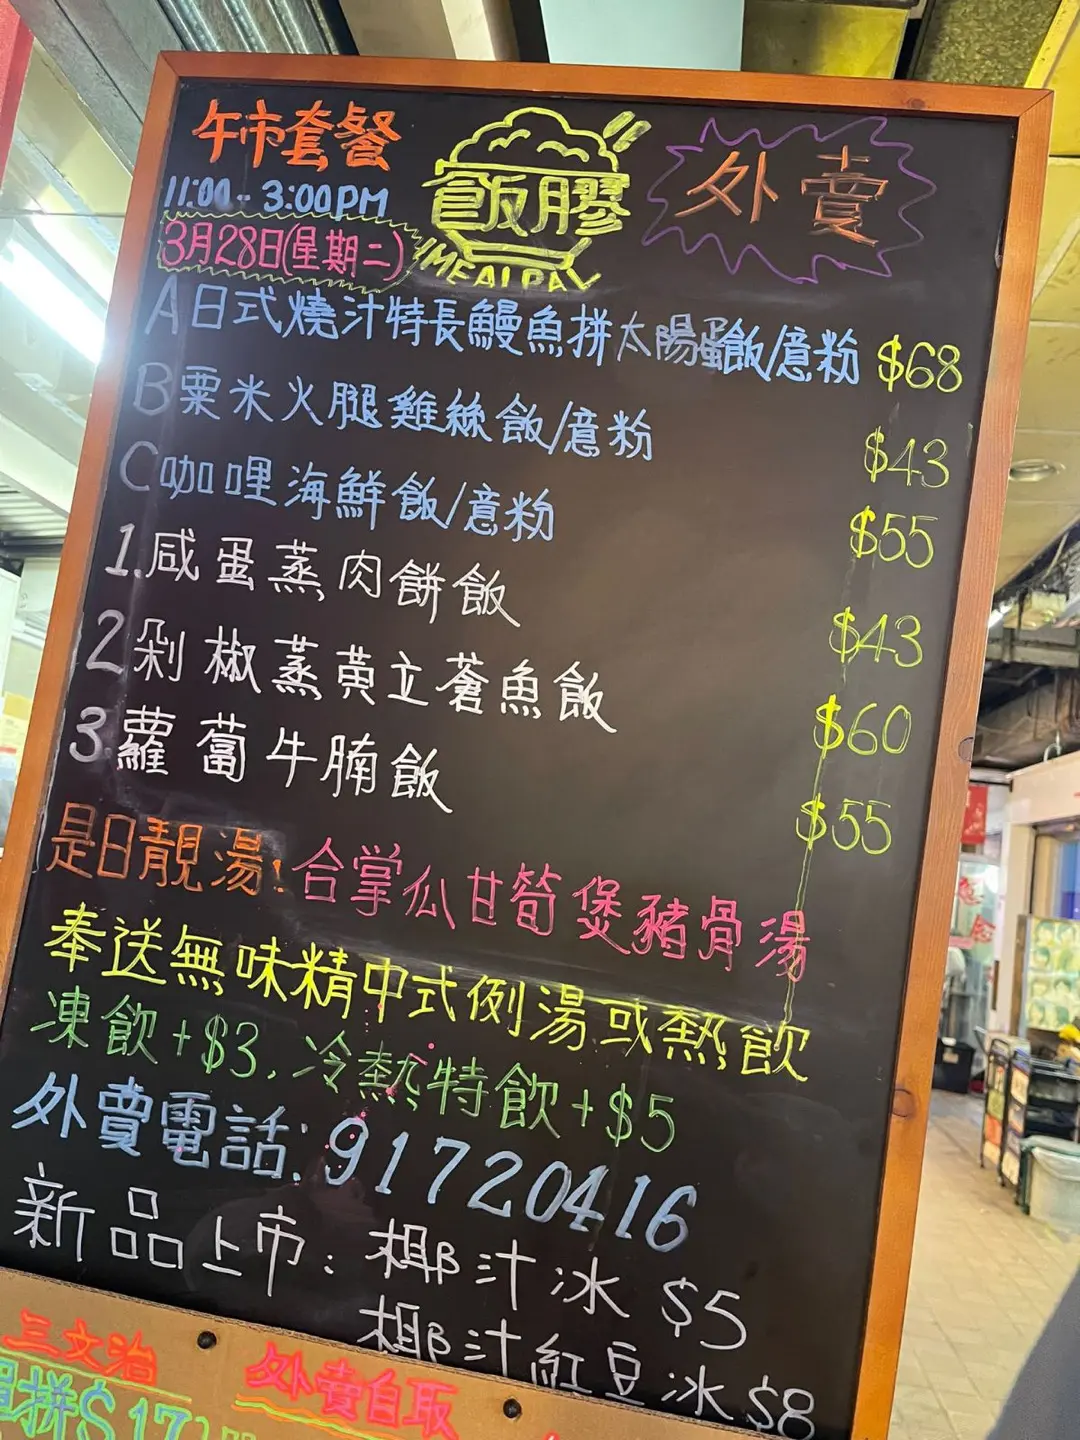 午市套餐
11:00 - 3:00PM
3月28日(星期二)
飯膠
MEALPAL
外賣
A日式燒汁特長鰻魚拼太陽蛋飯/意粉 $68
B粟米火腿雞絲飯/意粉 $43
C咖哩海鮮飯/意粉 $55
1.咸蛋蒸肉餅飯 $43
2剁椒蒸黃立蒼魚飯 $60
3.蘿蔔牛腩飯 $55
是日靚湯:合掌瓜甘筍煲豬骨湯
奉送無味精中式例湯或熱飲
凍飲+$3,冷熱特飲+$5
外賣電話:91720416
新品上市:椰汁冰 $5
椰汁紅豆冰 $8
三文治
外賣自取
拼$17